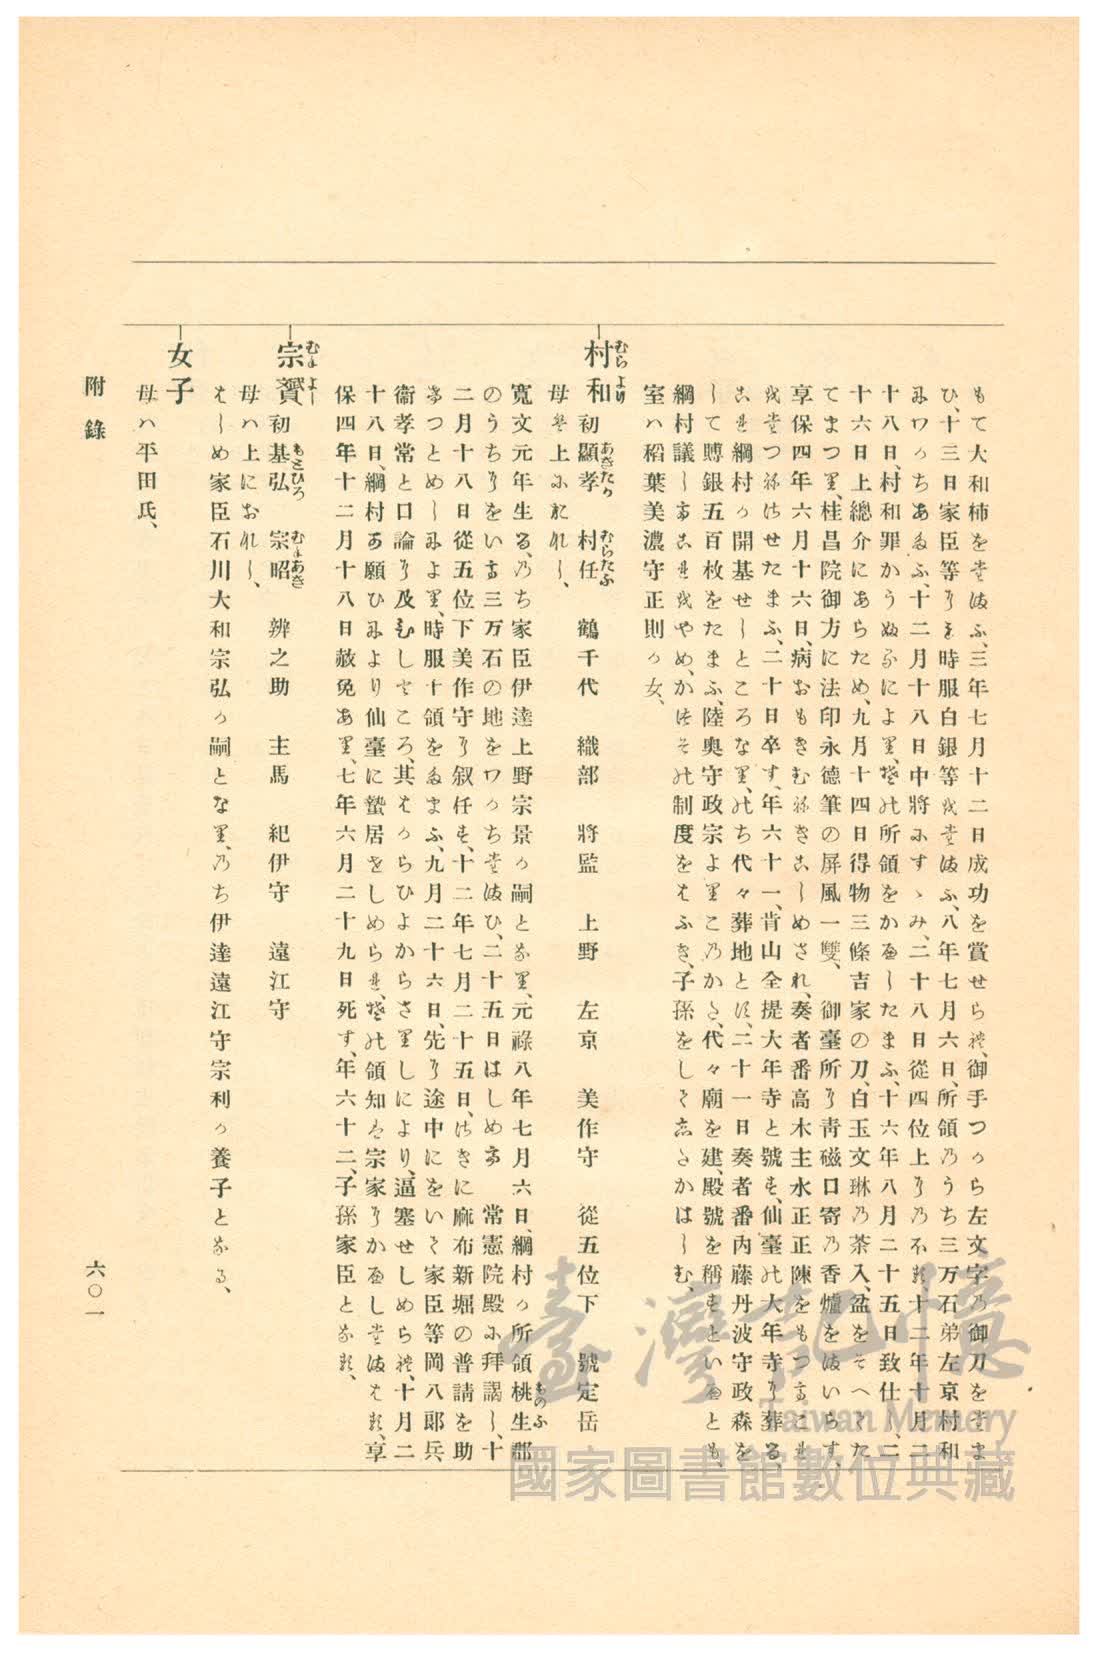 もて大和柿をたまふ、三年七月十二日成功を賞せられ、御手つから左文字乃御刀をたま
ひ、十三日家臣等りも時服白銀等をたまふ、八年七月六日、所領乃うち三万石弟左京村和
にわかちあたふ、十二月十八日中將にすゝみ、二十八日從四位上りのほる十二年十月二
十八日、村和罪かうふるによりその所領をかへしたまふ、十六年八月二十五日致仕し、二
十六日上總介にあらため、九月十四日得物三條吉家の刀、白玉文琳乃茶入、盆をそへてた
てまつり、桂昌院御方に法印永德筆の屏風一雙、御臺所り青磁口寄乃香爐をまいらす、
享保四年六月十六日、病おもきむねきこしめされ、奏者番高木主水正正陳をもつてこれ
をたつねさせたまふ、二十日卒す、年六十一、肯山全提大年寺と號す、仙臺の大年寺り葬る、
これ綱村か開基せしところなり、のち代々葬地とす、二十一日奏者番内藤丹波守政森を
して賻銀五百枚をたまふ、陸奧守政宗よりこのかた、代々廟を建、殿號を稱すといへとも、
綱村議してこれをやめ、かつその制度をはふき、子孫をしてしたかはしむ、
室ハ稻葉美濃守正則か女、
村和 むらより 初顯孝 あきたか 村任 むらたふ 鶴千代 織部 將監 上野 左京 美作守 從五位下 號定岳
母は上におれし、
寛文元年生る、乃ち家臣伊達上野宗景か嗣となり、元祿八年七月六日、綱村か所領桃生郡 ものふ
のうちりをいて三万石の地をわかちたまひ、二十五日はしめて 常憲院殿に拜謁し、十
二月十八日從五位下美作守り叙任す、十二年七月二十五日、さきに麻布新堀の普請を助
けつとめしにより、時服十領をたまふ、九月二十六日、先り途中にをいて家臣等岡八郎兵
衞孝常と口論り及ひしところ、其はからひよからさりしにより、逼塞せしめられ、十月二
十八日、綱村か願ひにより仙臺に蟄居をしめられ、その領知は宗家りかへしたまはる、享
保四年十二月十八日赦免あり、七年六月二十九日死す、年六十二、子孫家臣となる、
宗贇 むねよし 初基弘 もとひろ 宗昭 むねあき 辨之助 主馬 紀伊守 遠江守
母ハ上におれし、
はしめ家臣石川大和宗弘か嗣となり、乃ち伊達遠江守宗利か養子となる、
女子
母ハ平田氏、
附錄
六〇一
臺灣記憶
Taiwan Memory
國家圖書館數位典藏